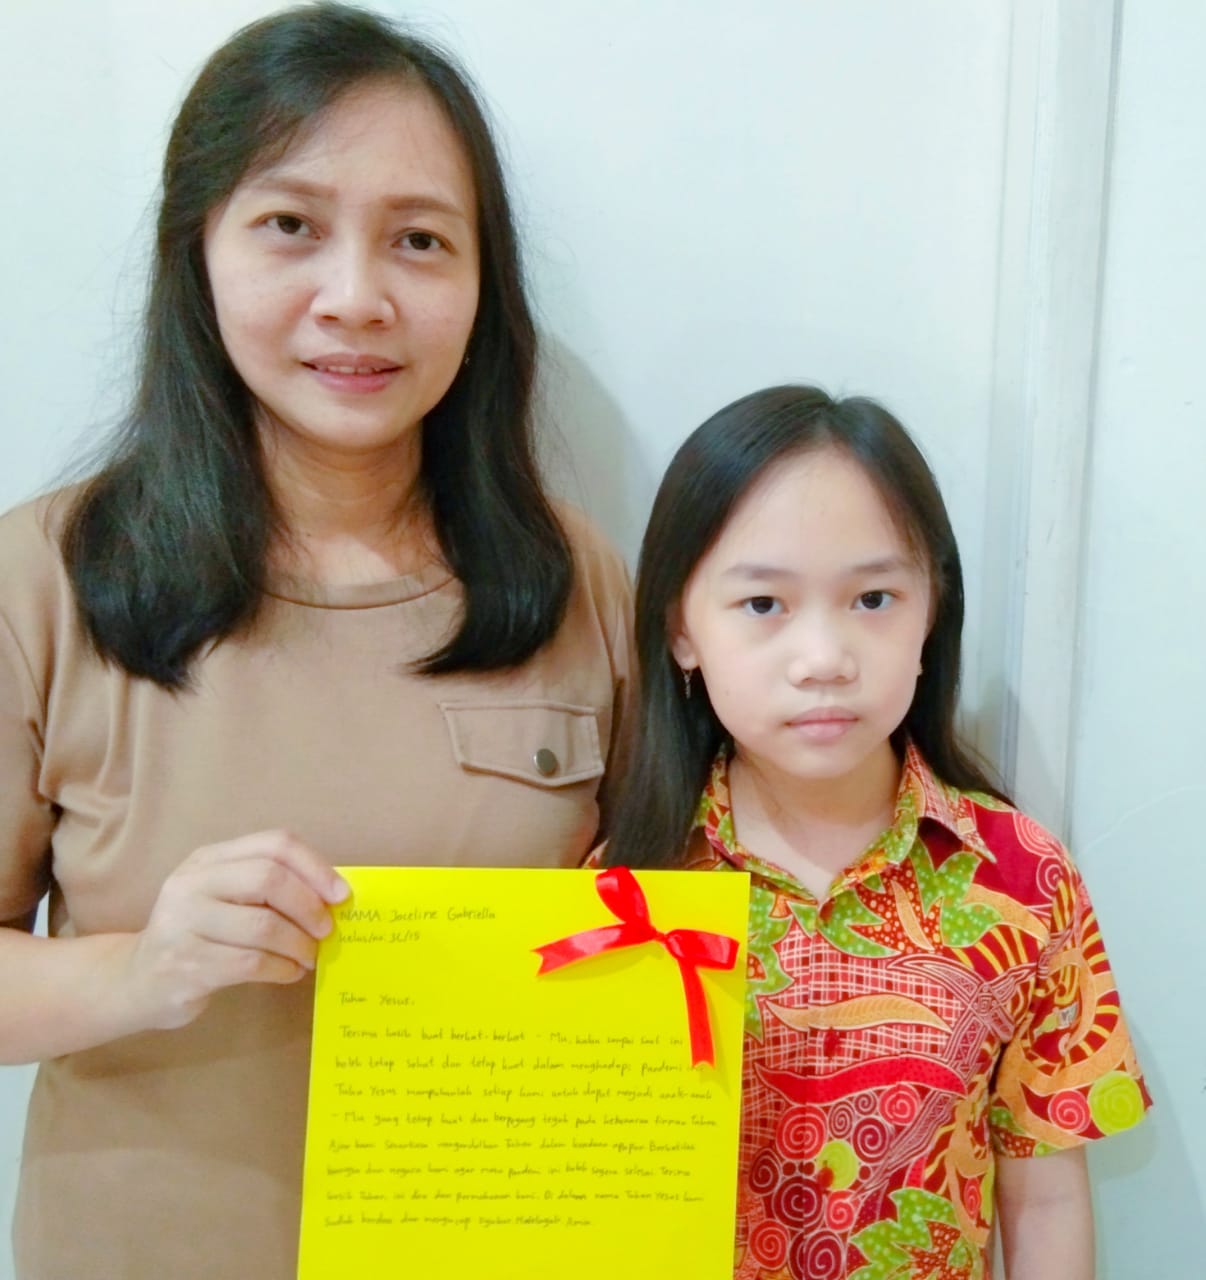 NAMA: Joceline Gabriella
Kelas/no: 3C/15
Tuhan Yesus,
Terima kasih buat berkat-berkat - Mu, kalau sampai saat ini
boleh tetap sehat dan tetap kuat dalam menghadapi pandemi ini
Tuhan Yesus mampukanlah setiap kami untuk dapat menjadi anak-anak
- Mu yang tetap kuat dan berpegang teguh pada kebenaran firman Tuhan
Ajar kami senantiasa mengandalkan Tuhan dalam keadaan apapun Berkatilah
bangsa dan negara kami agar masa pandemi ini boleh segera selesai Terima
kasih Tuhan, ini doa dan permohonan kami. Di dalam nama Tuhan Yesus kami
sudah berdoa dan mengucap syukur. Haleluyah. Amin